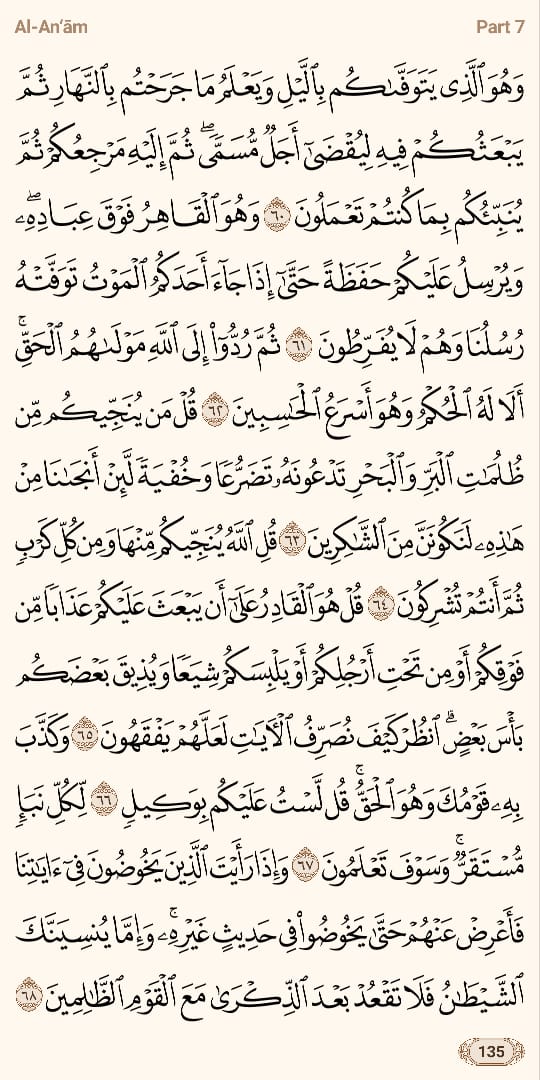 Al-An‘ām
Part 7
وَهُوَ ٱلَّذِى يَتَوَفَّىٰكُم بِٱلَّيْلِ وَيَعْلَمُ مَا جَرَحْتُم بِٱلنَّهَارِ ثُمَّ
يَبْعَثُكُمْ فِيهِ لِيُقْضَىٰٓ أَجَلٌ مُّسَمًّى ۖ ثُمَّ إِلَيْهِ مَرْجِعُكُمْ ثُمَّ
يُنَبِّئُكُم بِمَا كُنتُمْ تَعْمَلُونَ ٦٠ وَهُوَ ٱلْقَاهِرُ فَوْقَ عِبَادِهِۦ ۖ
وَيُرْسِلُ عَلَيْكُمْ حَفَظَةً حَتَّىٰٓ إِذَا جَآءَ أَحَدَكُمُ ٱلْمَوْتُ تَوَفَّتْهُ
رُسُلُنَا وَهُمْ لَا يُفَرِّطُونَ ٦١ ثُمَّ رُدُّوٓا۟ إِلَى ٱللَّهِ مَوْلَىٰهُمُ ٱلْحَقِّ ۚ
أَلَا لَهُ ٱلْحُكْمُ وَهُوَ أَسْرَعُ ٱلْحَـٰسِبِينَ ٦٢ قُلْ مَن يُنَجِّيكُم مِّن
ظُلُمَـٰتِ ٱلْبَرِّ وَٱلْبَحْرِ تَدْعُونَهُۥ تَضَرُّعًا وَخُفْيَةً لَّئِنْ أَنجَىٰنَا مِنْ
هَـٰذِهِۦ لَنَكُونَنَّ مِنَ ٱلشَّـٰكِرِينَ ٦٣ قُلِ ٱللَّهُ يُنَجِّيكُم مِّنْهَا وَمِن كُلِّ كَرْبٍ
ثُمَّ أَنتُمْ تُشْرِكُونَ ٦٤ قُلْ هُوَ ٱلْقَادِرُ عَلَىٰٓ أَن يَبْعَثَ عَلَيْكُمْ عَذَابًا مِّن
فَوْقِكُمْ أَوْ مِن تَحْتِ أَرْجُلِكُمْ أَوْ يَلْبِسَكُمْ شِيَعًا وَيُذِيقَ بَعْضَكُم
بَأْسَ بَعْضٍ ۗ ٱنظُرْ كَيْفَ نُصَرِّفُ ٱلْـَٔايَـٰتِ لَعَلَّهُمْ يَفْقَهُونَ ٦٥ وَكَذَّبَ
بِهِۦ قَوْمُكَ وَهُوَ ٱلْحَقُّ ۚ قُل لَّسْتُ عَلَيْكُم بِوَكِيلٍ ٦٦ لِّكُلِّ نَبَإٍ
مُّسْتَقَرٌّ ۚ وَسَوْفَ تَعْلَمُونَ ٦٧ وَإِذَا رَأَيْتَ ٱلَّذِينَ يَخُوضُونَ فِىٓ ءَايَـٰتِنَا
فَأَعْرِضْ عَنْهُمْ حَتَّىٰ يَخُوضُوا۟ فِى حَدِيثٍ غَيْرِهِۦ ۚ وَإِمَّا يُنسِيَنَّكَ
ٱلشَّيْطَـٰنُ فَلَا تَقْعُدْ بَعْدَ ٱلذِّكْرَىٰ مَعَ ٱلْقَوْمِ ٱلظَّـٰلِمِينَ ٦٨
135